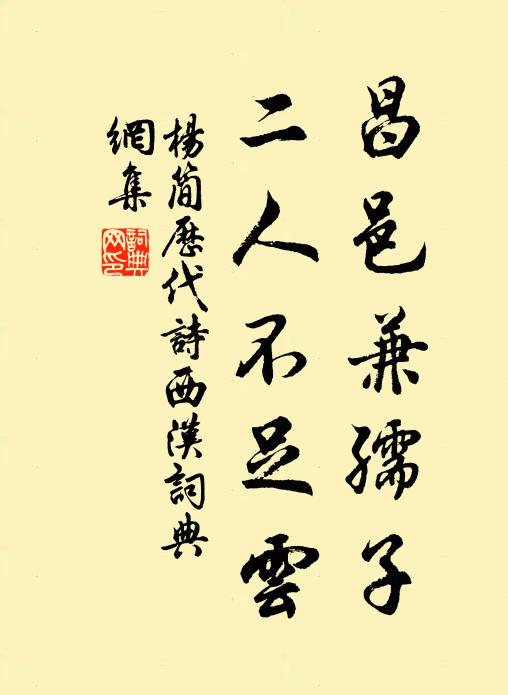 昌邑兼孺子
二人不足雲
楊簡歷代詩西漢詞典
網集
詞典
网印